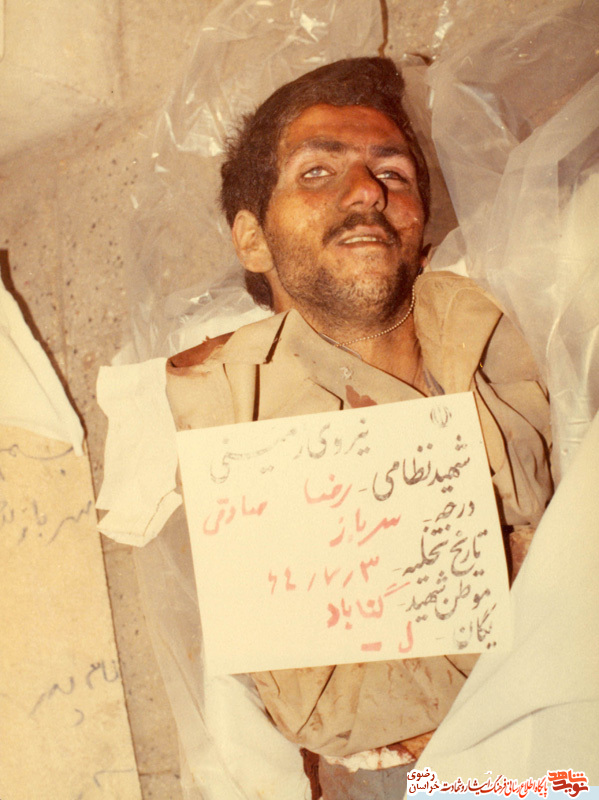 نیروی زمینی
شهید نظامی - رضا صادقی
درجه - سرباز
تاریخ تخلیه - ۶۴/۷/۳
موطن شهید - گناباد
یگان - ل -
بسم
سرباز
نام پدر
نوید شاهد
پایگاه اطلاع رسانی فرهنگ ایثار و شهادت
خراسان رضوی